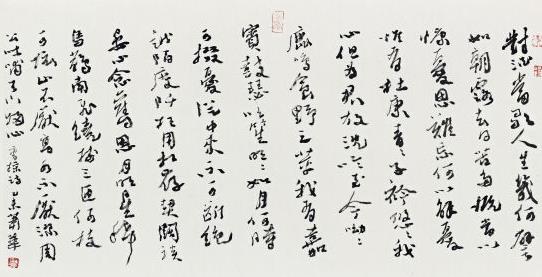 對酒當歌人生幾何譬
如朝露去日苦多慨當以
慷憂思難忘何以解憂
惟有杜康青青子衿悠悠我
心但為君故沈吟至今呦呦
鹿鳴食野之苹我有嘉
賓鼓瑟吹笙明明如月何時
可掇憂從中來不可斷絕
越陌度阡枉用相存契闊談
宴心念舊恩月明星稀
烏鵲南飛繞樹三匝何枝
可依山不厭高水不厭深周
公吐哺天下歸心 曹操詩